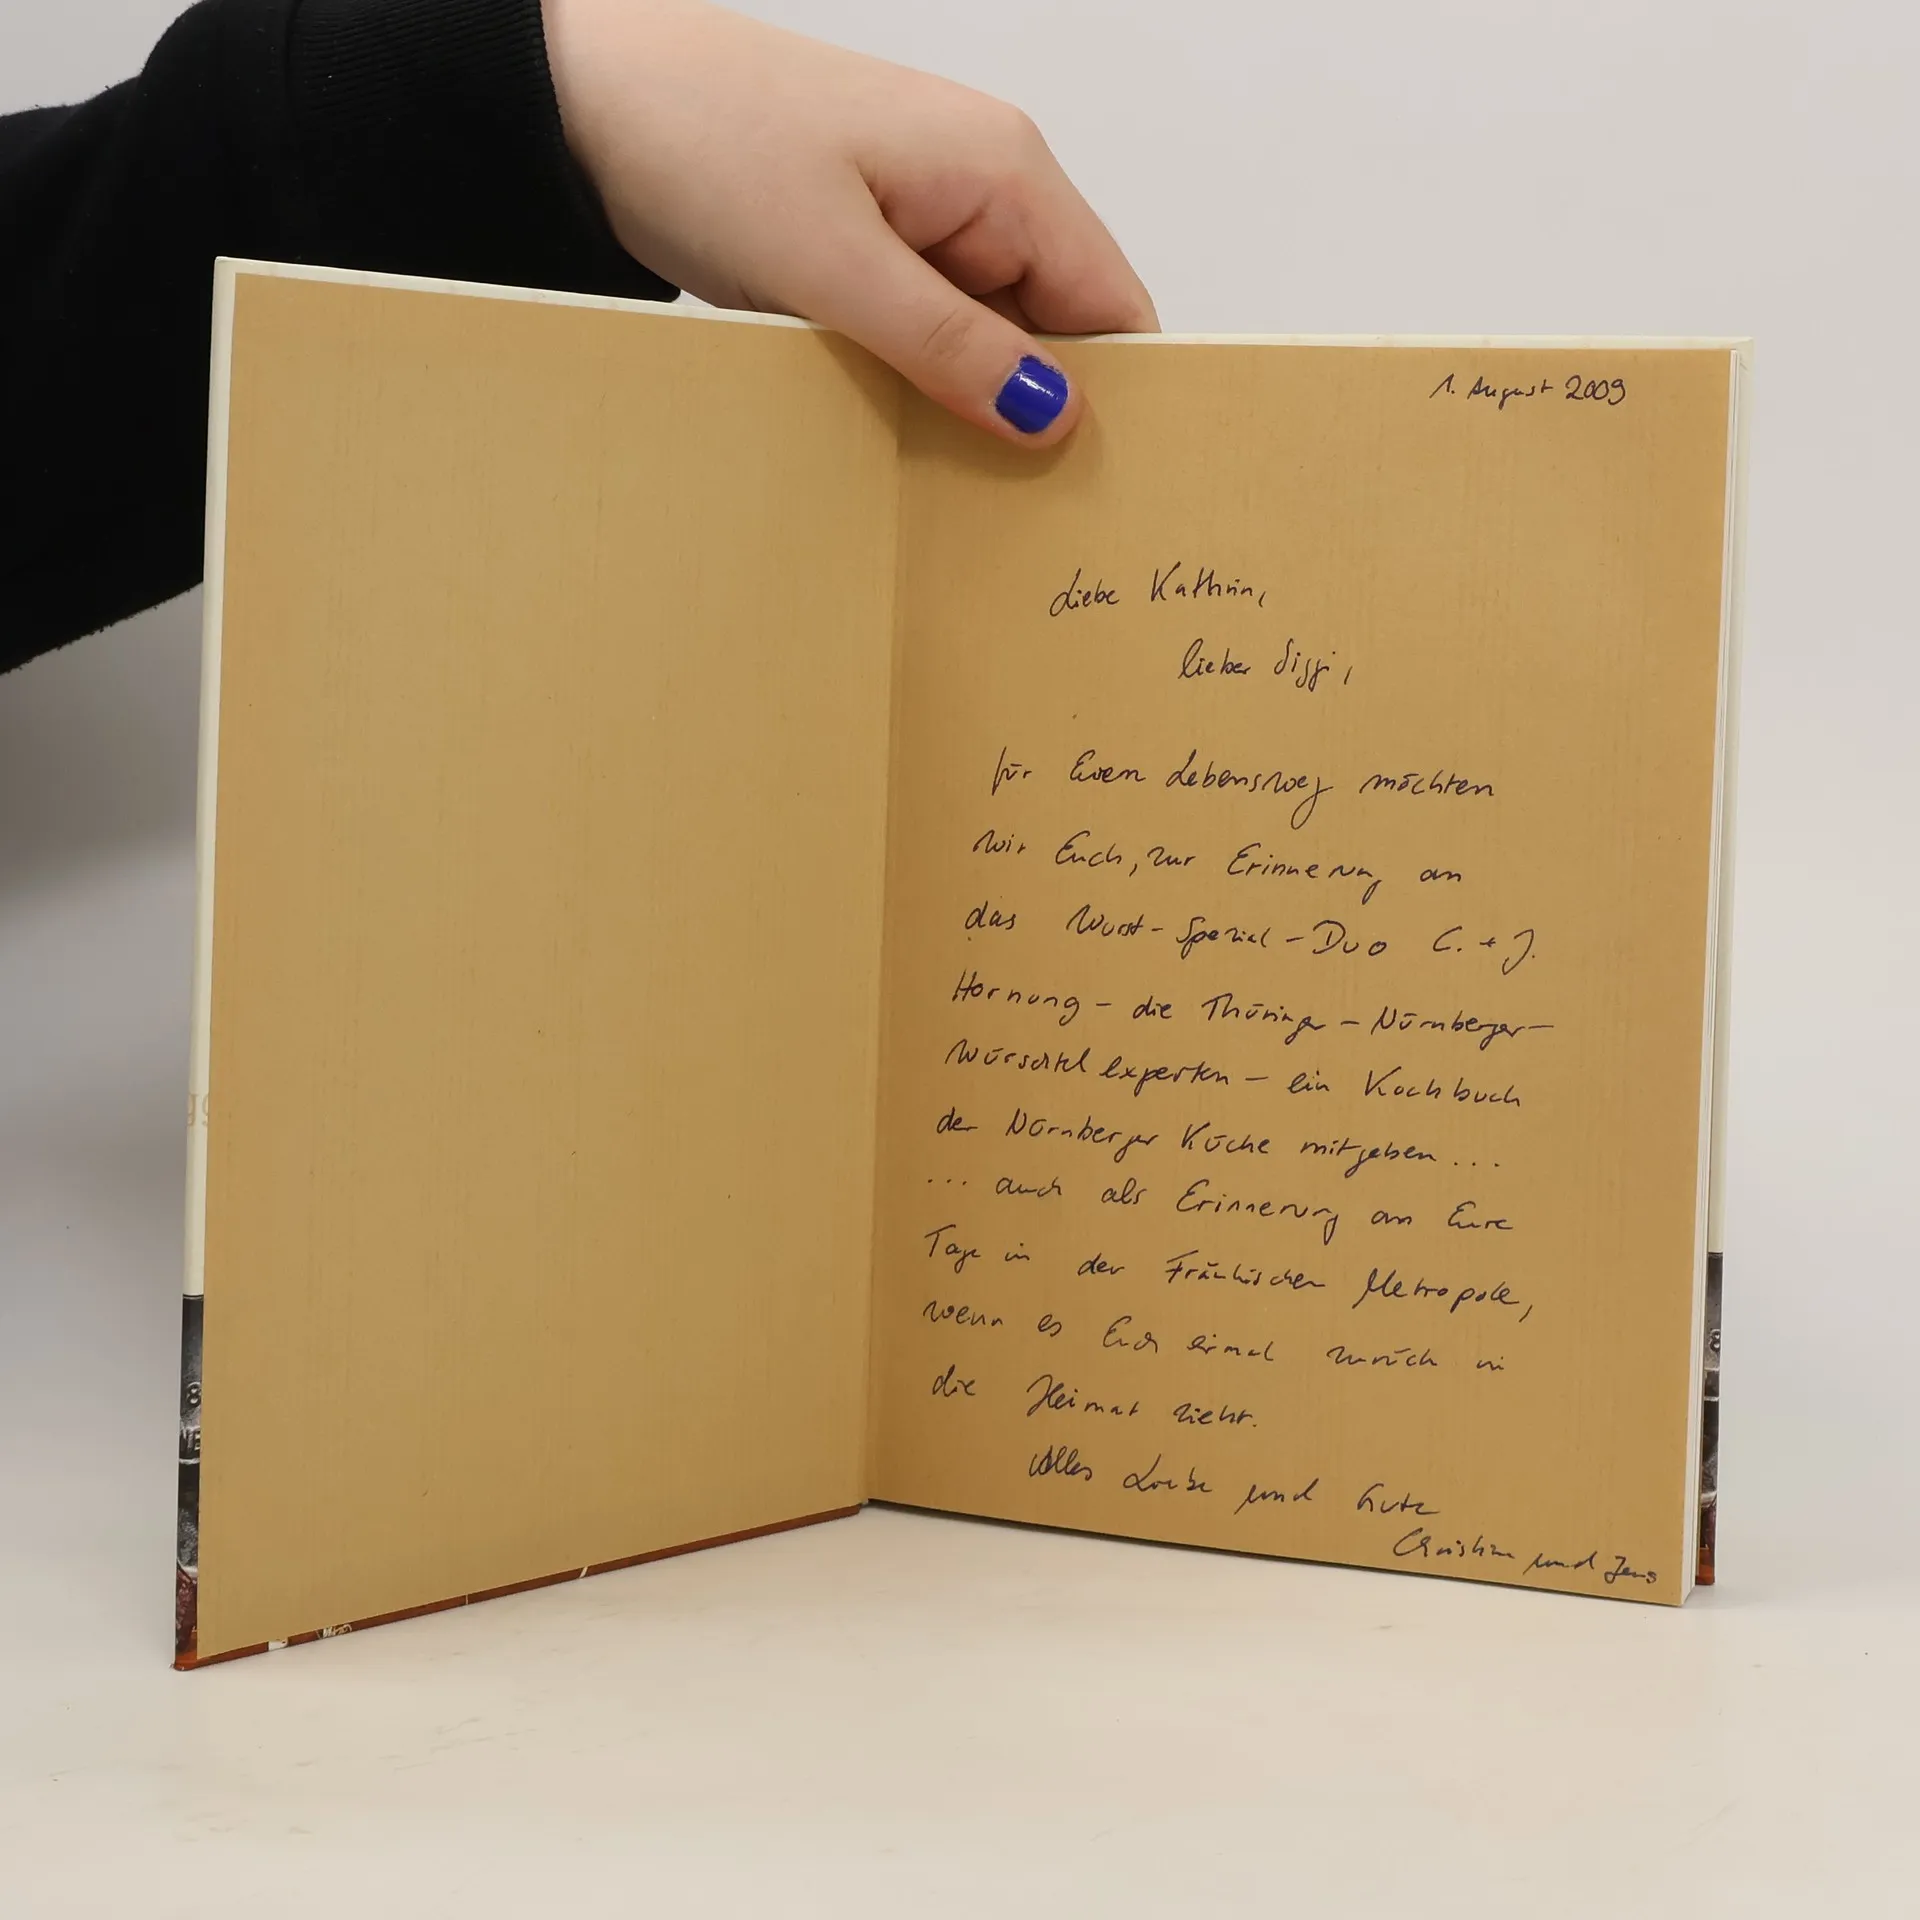 1. August 2009
Liebe Kathrin,
lieber Siggi,
für Euern Lebensweg möchten
wir Euch, zur Erinnerung an
das Wurst-Spezial-Duo C. + J.
Hornung - die Thüringer-Nürnberger-
Würschtelexperten - ein Kochbuch
der Nürnberger Küche mitgeben...
... auch als Erinnerung an Eure
Tage in der Fränkischen Metropole,
wenn es Euch einmal zurück in
die Heimat zieht.
Alles Liebe und Gute
Christine und Jens